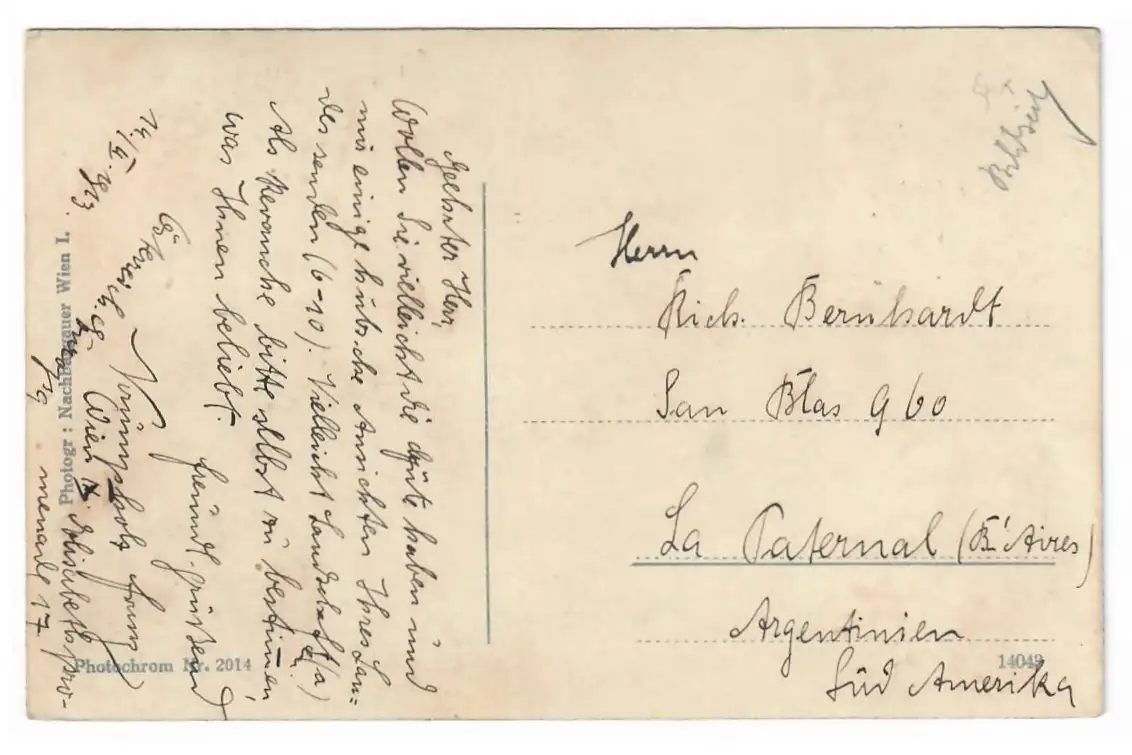 14./II. 913
Geehrter Herr,
Wollen Sie vielleicht die Güte haben und
mir einige hübsche Ansichten Ihres Lan=
des senden (6-10). Vielleicht Landschaft(en)
Als Revanche bitte selbst zu bestimen
was Ihnen beliebt.
freundl. grüßend
Krumpholz Franz
Wien IX. Elisabethpro-
menade 17
Photogr: Nachbargauer Wien I.
Photochrom Nr. 2014
14049
Bildseite
Herrn
Rich. Bernhardt
San Blas 960
La Paternal (B. Aires)
Argentinien
Süd Amerika